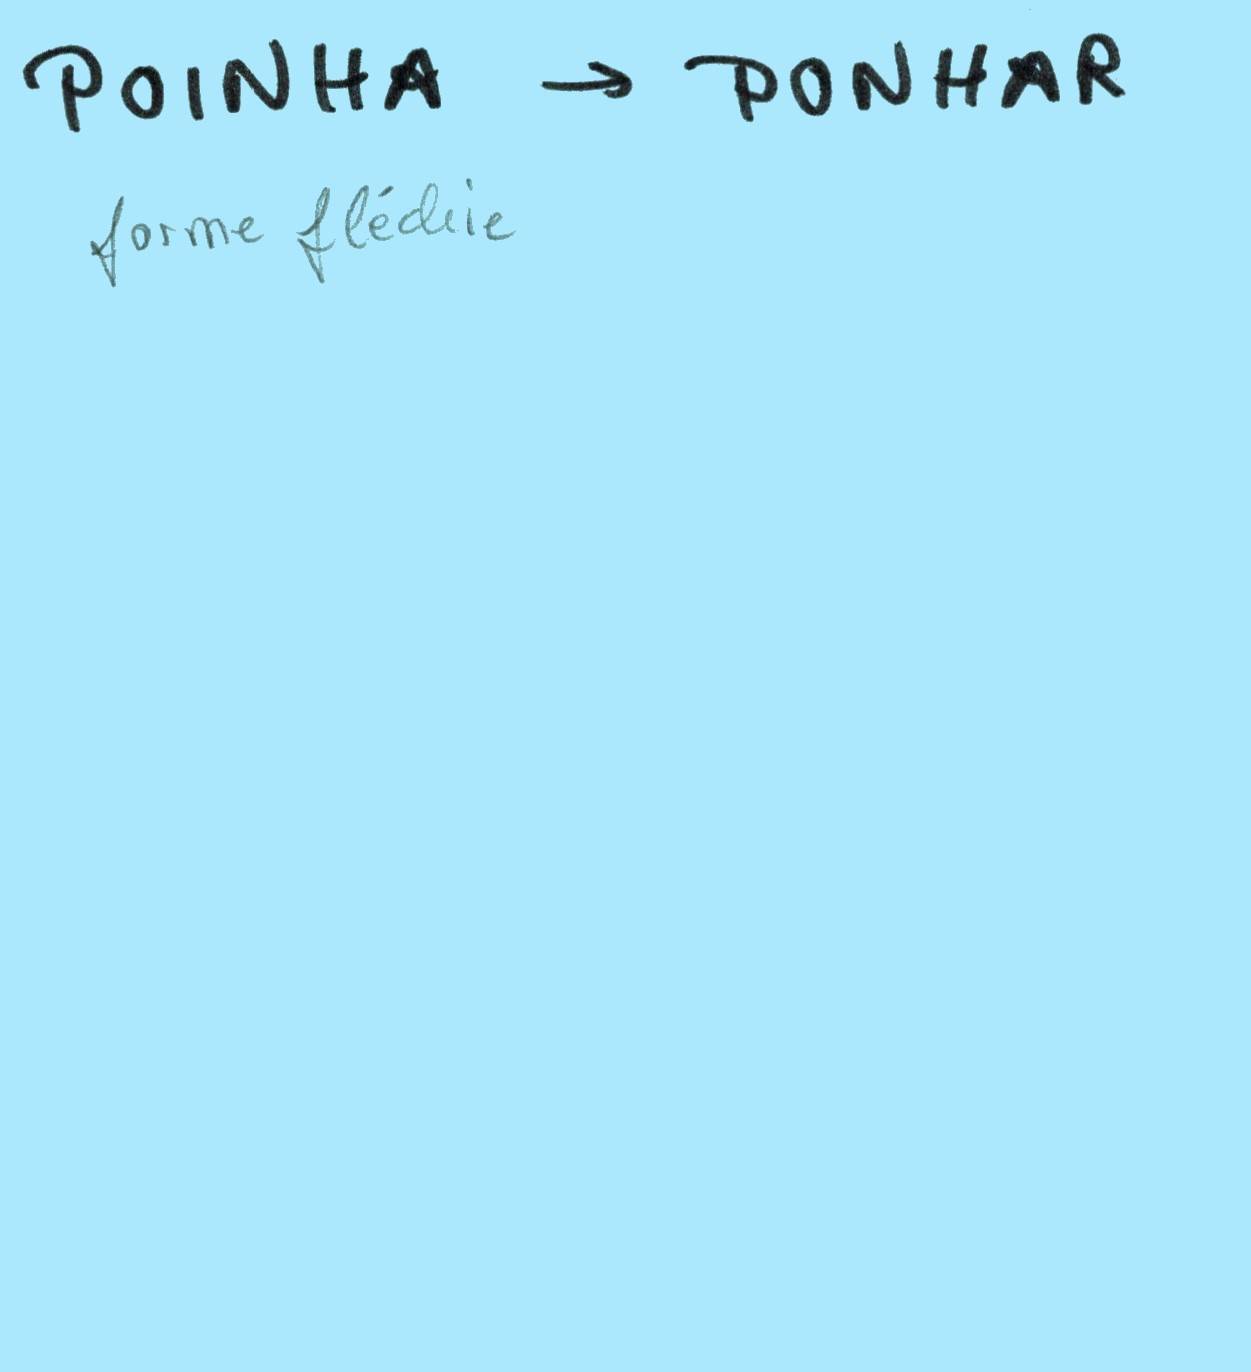 POINHA → PONHAR
forme fléchie